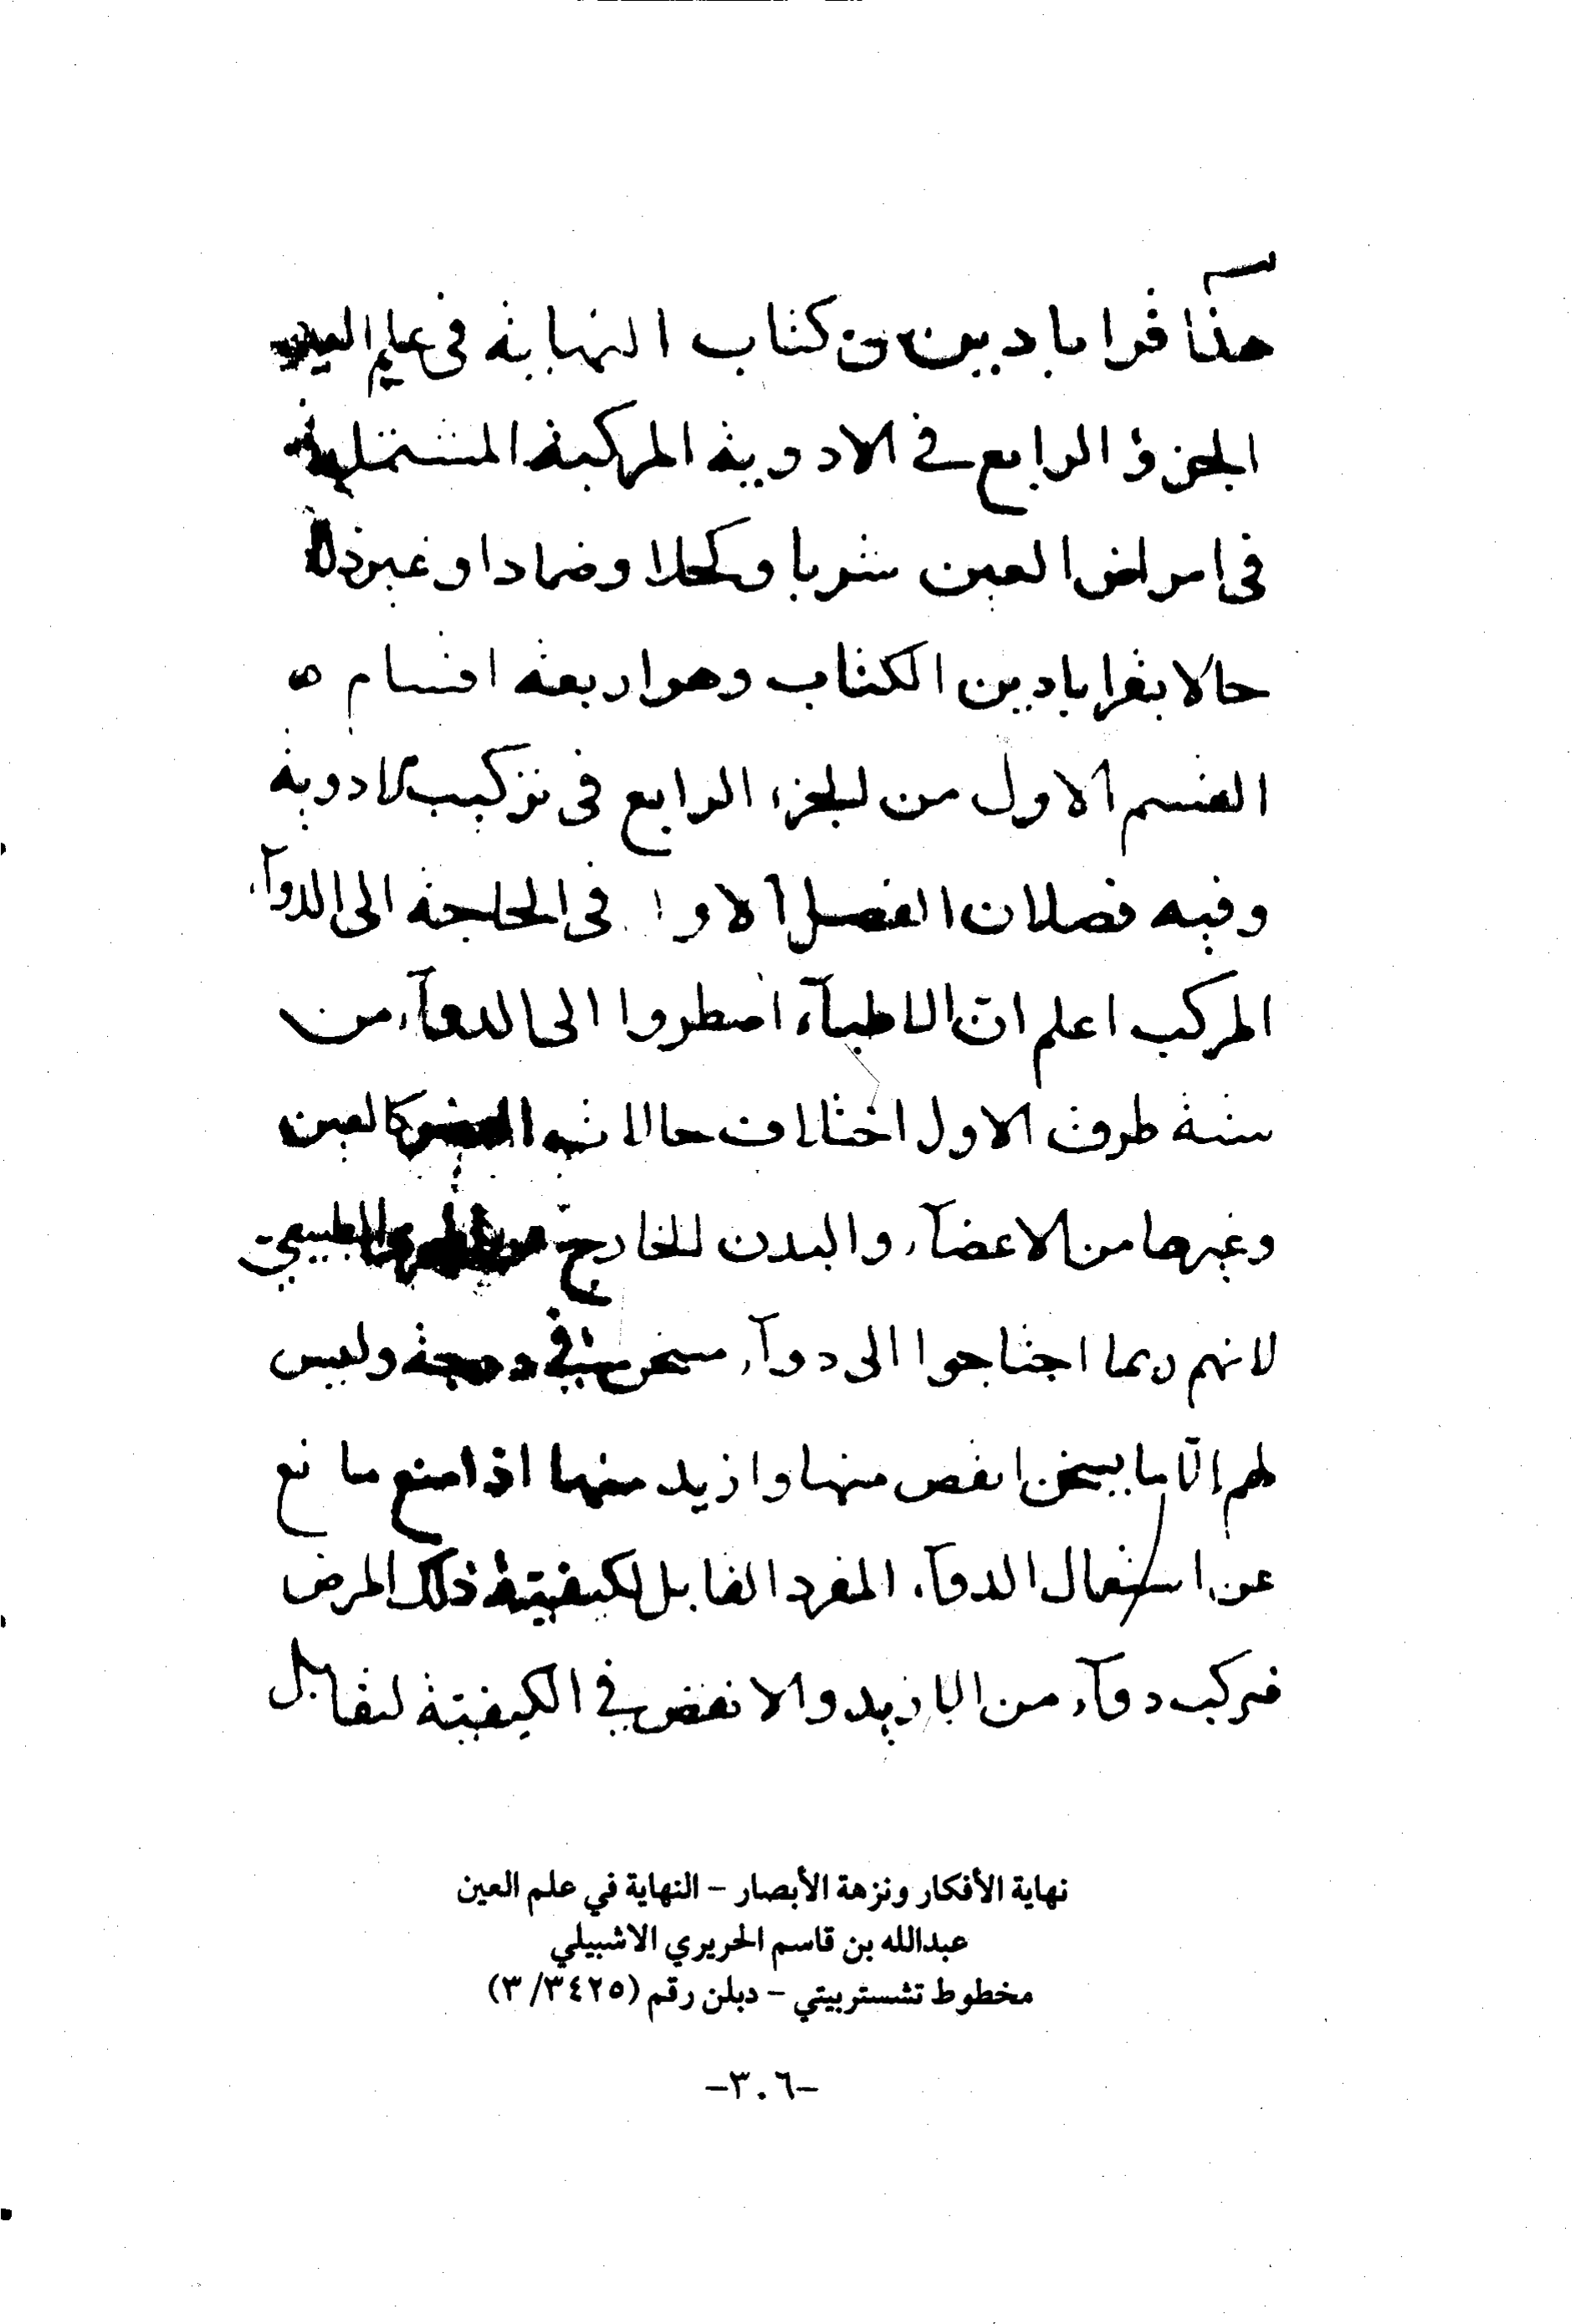 هذا قراباديـن من كتاب النهاية في علم العين
الجزؤ الرابع في الادوية المركبة المشتملة
في امراض العين شربا وكحلا وضمادا وغير ذلك
حالا بقراباديـن الكتاب وهو اربعة اقسام ه
القسم الاول من الجزء الرابع في تركيب الادوية
وفيه فصلان الفصل الاول في الحاجة الى الدوآء
المركب اعلم ان الاطبآء اضطروا الى الدوآء من
ستة طرق الاول اختلاف حالات كالعين
وغيرها من الاعضآء والبدن للخارج الطبيعي
لانهم ربما احتاجوا الى دوآء مسخن في درجة وليس
لهم إلّا ما يسخن انقص منها وازيد منها اذا منع مانع
عن استعمال الدوآء المفرد القابل لكيفية ذلك المرض
فيركب دوآء من الازيد والانقص في الكيفية ليقابل
نهاية الأفكار ونزهة الأبصار – النهاية في علم العين
عبدالله بن قاسم الحريري الاشبيلي
مخطوط تشستربيتي – دبلن رقم (٣/٣٤٢٥)
–٣٠٦–